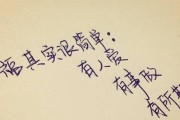 福其实很简单:
有人爱
有事做
有所